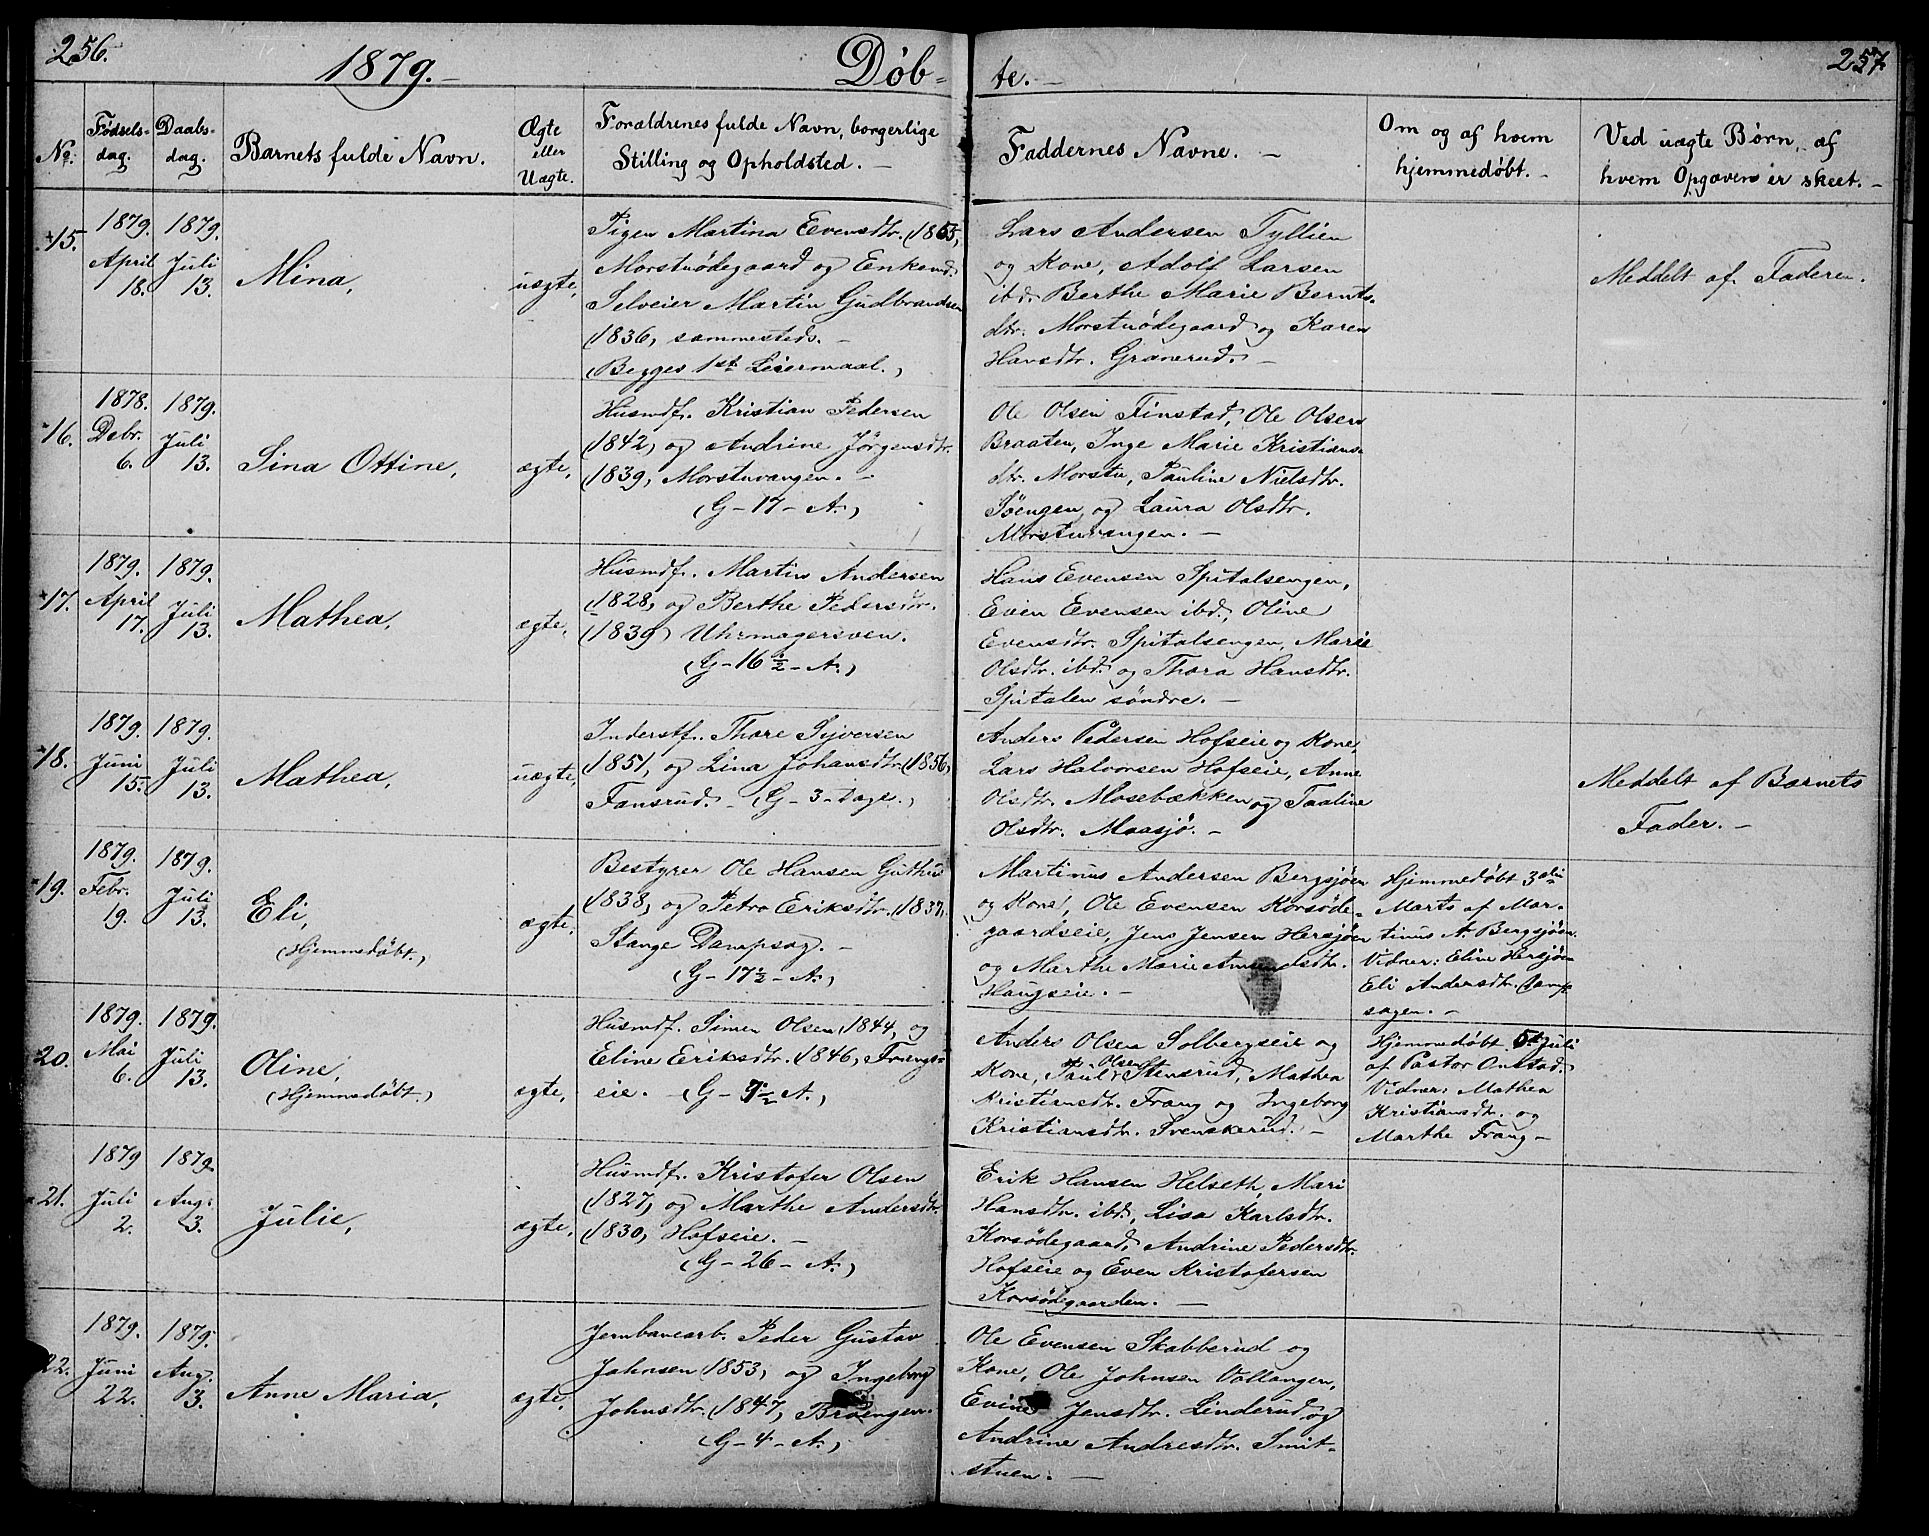 256.
1879.—
Døb-
te.—
257
No.
Fødsels-
dag.
Daabs-
dag.
Barnets fulde Navn.
Ægte
eller
Uægte.
Forældrenes fulde Navn, borgerlige
Stilling og Opholdsted. —
Faddernes Navne. —
Om og af hvem
hjemmedøbt. —
Ved uægte Børn, af
hvem Opgaven er skeet. —
15.
1879.
April
18.
1879.
Juli
13.
Mina,
uægte,
Pigen Martina Evensdtr. (1855,
Morstuødegaard og Enkemd.
Selveier Martin Gudbrandsen
(1836, sammesteds. —
(Begges 1st Leiermaal.)
Lars Andersen Tyllien
og Kone, Adolf Larsen
ibd. Berthe Marie Bernts-
dtr. Morstuødegaard og Karen
Hansdtr. Granerud. —
Meddelt af Faderen.
16.
1878.
Debr.
6.
1879.
Juli
13.
Sina Ottine,
ægte,
Husmdf. Kristian Pedersen
(1842, og Andrine Jørgensdtr.
(1839, Morstuvangen. —
(G-17-A.)
Ole Olsen Finstad, Ole Olsen
Braaten, Inge Marie Kristians-
dtr. Morstu, Pauline Nielsdtr.
Søengen, og Laura Olsdtr.
Morstuvangen. —
17.
1879.
April
17.
1879.
Juli
13.
Mathea,
ægte,
Husmdf. Martin Andersen
(1828, og Berthe Pedersdtr.
(1839) Uhrmagersven.
(G-16½-A.)
Hans Evensen Spitalsengen,
Even Evensen ibd., Oline
Evensdtr. Spitalsengen, Marie
Olsdtr. ibd. og Thora Hansdtr.
Spitalen søndre. —
18.
1879.
Juni
15.
1879.
Juli
13.
Mathea,
uægte,
Inderstf. Thore Syversen
(1851, og Lina Johansdtr. (1856,
Fansrud. — (G-3-Dage.)
Anders Pedersen Hofseie og Kone,
Lars Halvorsen Hofseie, Anne
Olsdtr. Mosebækken og Taaline
Olsdtr. Maasjø. —
Meddelt af Barnets
Fader. —
19.
1879.
Febr.
19.
1879.
Juli
13.
Eli,
(Hjemmedøbt.)
ægte,
Bestyrer Ole Hansen Guthus
(1838, og Petra Eriksdtr. (1837,
Stange Dampsag. —
(G-17½-A.)
Martinus Andersen Bergsjøen
og Kone, Ole Evensen Korsøde-
gaardseie, Jens Jensen Hersjøen
og Marthe Marie Amundsdtr.
Haugseie. —
Hjemmedøbt 3die
Marts af Mar-
tinus A. Bergsjøen.
Vidner: Eline Hersjøen
Eli Andersdtr. Damp-
sagen. —
20.
1879.
Mai
6.
1879.
Juli
13.
Oline,
(Hjemmedøbt.)
ægte,
Husmdf. Simen Olsen (1844, og
Eline Eriksdtr. (1846, Frangs-
eie. — (G-7½ A.)
Anders Olsen Solbergseie og
Kone, Paul Olsen Stensrud, Mathea
Kristiansdtr. Frang og Ingeborg
Kristiansdtr. Svenskerud. —
Hjemmedøbt 5te Juli
af Pastor Onstad.
Vidner: Mathea
Kristiansdtr. og
Marthe Frang —
21.
1879
Juli
2.
1879
Aug.
3.
Julie,
ægte,
Husmdf. Kristofer Olsen
(1827, og Marthe Andersdtr.
(1830, Hofseie. —
(G-26-A.)
Erik Hansen Helseth, Mari
Hansdtr. ibd., Lisa Karlsdtr.
Korsødegaard, Andrine Pedersdtr.
Hofseie og Even Kristofersen
Korsødegaarden. —
22.
1879.
Juni
22.
1879.
Aug.
3.
Anne Maria,
ægte,
Jernbanearb. Peder Gustav
Johnsen (1853, og Ingeborg
Johnsdtr. (1847, Broengen.
(G-4-A.)
Ole Evensen Skabberud og
Kone, Ole Johnsen Vollangen,
Evine Jensdtr. Linderud og
Andrine Andresdtr. Smit-
stuen. —